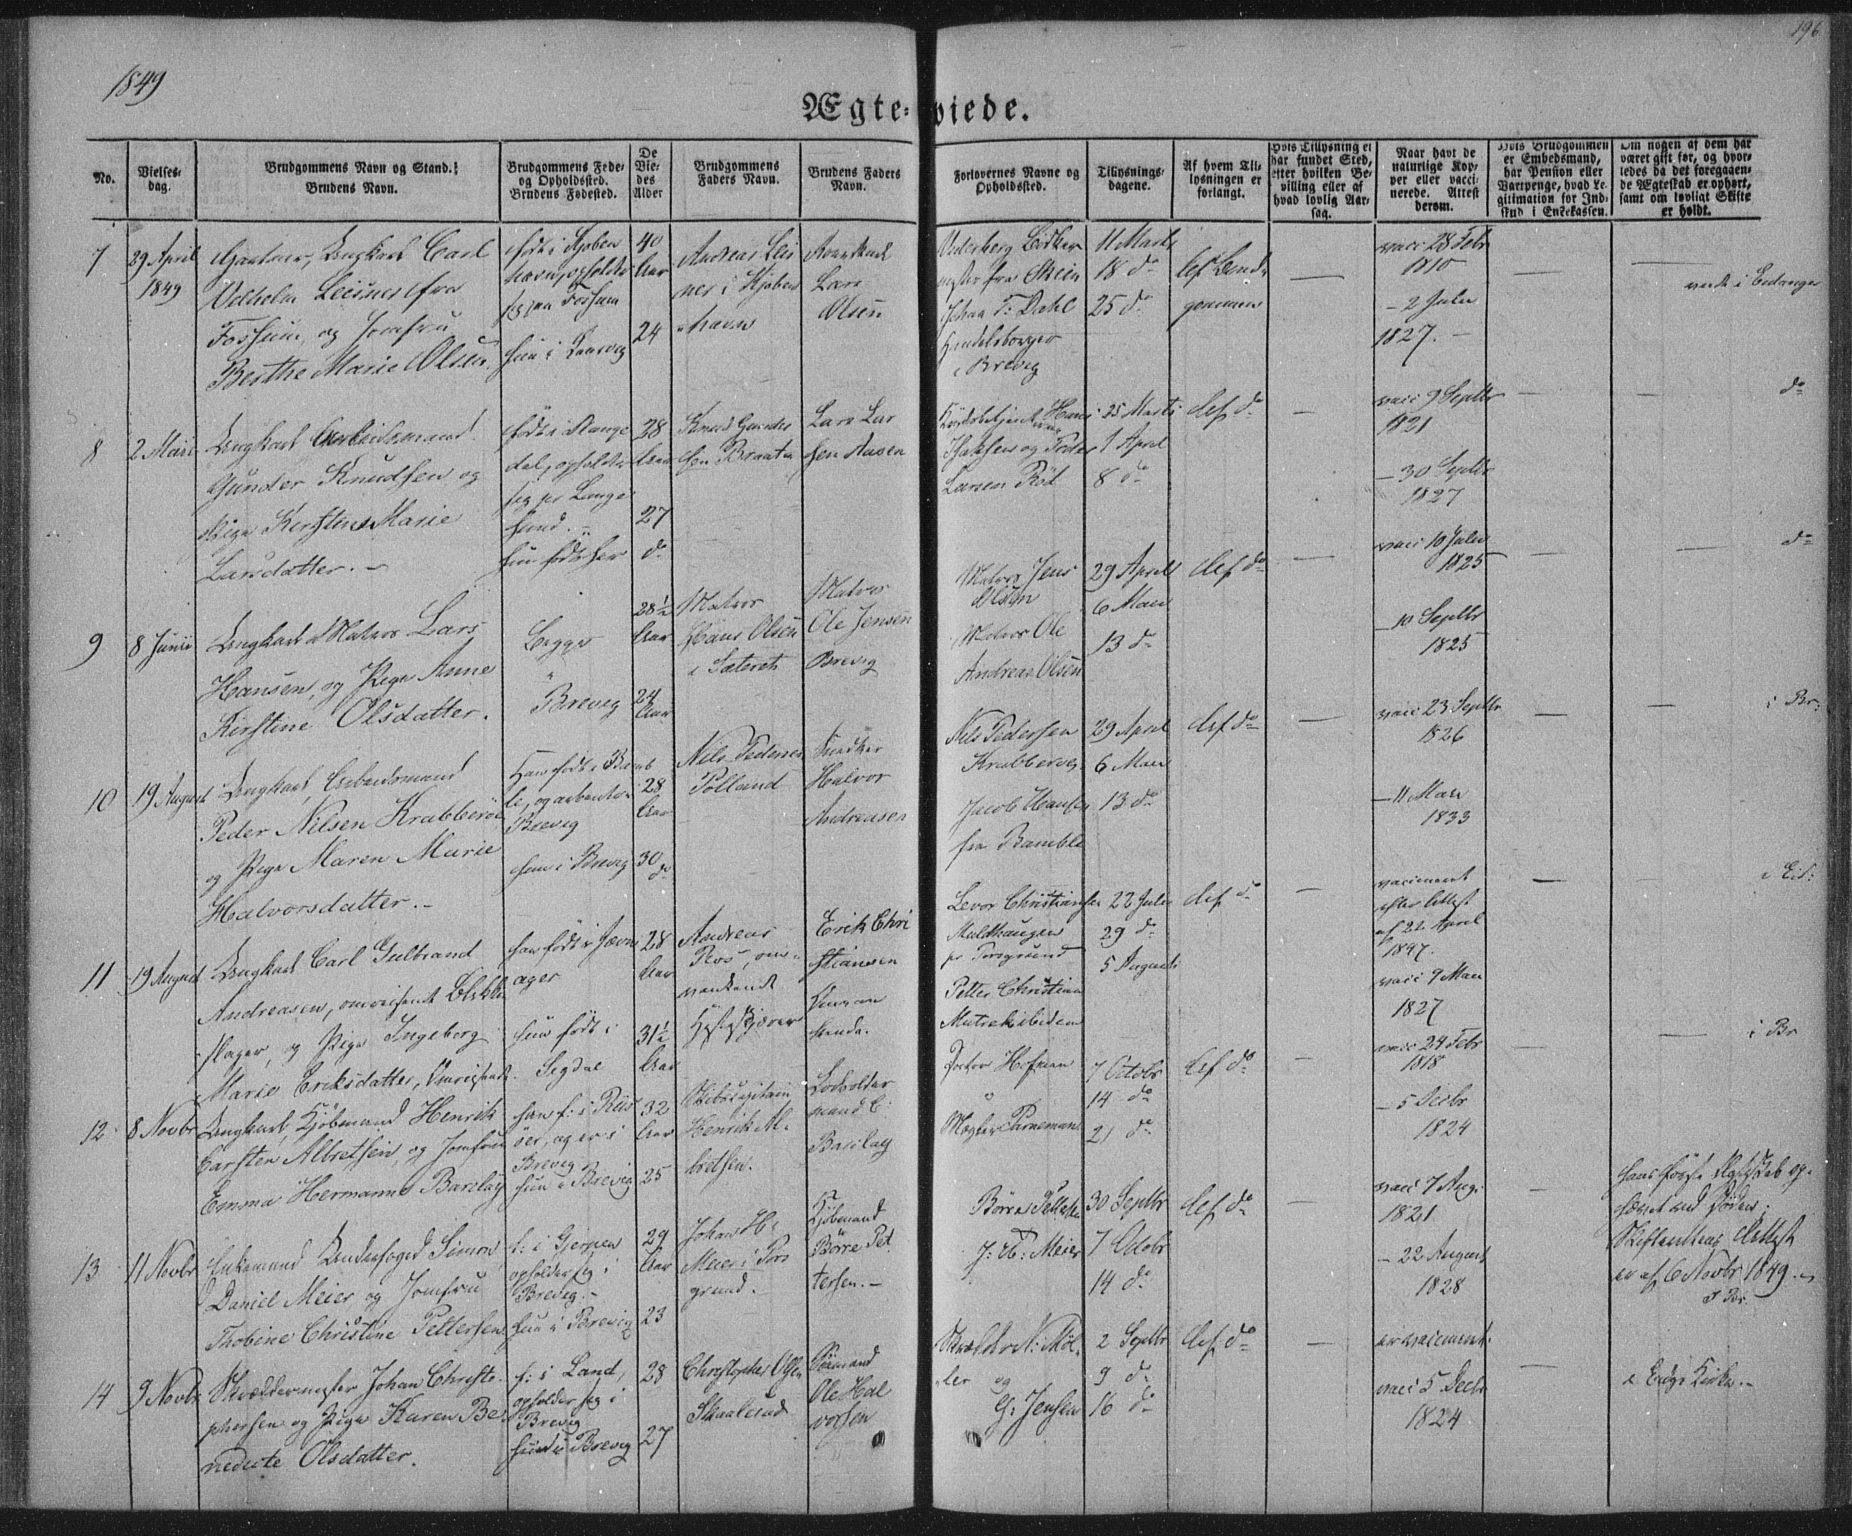 196
1849
Ægteviede.
No.
Vielsesdag.
Brudgommens Navn og Stand.
Brudens Navn.
Brudgommens Føde-
og Opholdssted.
Brudens Fødested.
De
Vie-
des
Alder
Brudgommens
Faders Navn.
Brudens Faders
Navn.
Forlovernes Navne og
Opholdssted.
Tillysnings-
dagene.
Af hvem Til-
lysningen er
forlangt.
Hvis Tillysning ei
har fundet Sted,
efter hvilken Be-
villing eller af
hvad lovlig Aar-
sag.
Naar havt de
naturlige Kop-
per eller vacci-
nerede. Attest
derom.
Hvis Brudgommen
er Embedsmand,
har Pension eller
Vartpenge, hvad Le-
gitimation for Ind-
skud i Enkekassen.
Om nogen af dem har
været gift før, og hvor-
ledes da det foregaaen-
de Ægteskab er ophørt,
samt om lovligt Skifte
er holdt.
7
29 April
1849
Gartner, Ungkarl Carl
Vilhelm Leisner fra
Fossum, og Jomfru
Berthe Marie Olsen.
født i Kjøben
havn, opholder
sig paa Fossum
hun i
40
Aar
24
Andreas Leis
ner i Kjøben
havn
Lars
Olsen
fra Skein
Johan F: Dahl
Handelsborger
i Brevig
11 Marts
18 do
25 do
vacc 28 Febr
1810
- 2 Julii
1827. -
viede i Eidanger
8
2 Mai
Ungkarl Arbeidsmand
Gunder Knudsen og
Pige Kirstine Marie
Larsdatter. -
født i Range
dal, opholder
sig pr Lange
sund. -
hun født her
28
Aar
27
do
Knud Gunder
sen Braaten
Lars Lar
sen Aasen
Hans
Isaksen og Peder
Larsen
25 Marts
1 April
8 do
do
vacc 9 Septbr
1821
- 30 Septbr
1827
do
9
8 Junii
Ungkarl Matros Lars
Hansen, og Pige Anne
Kirstine Olsdatter.
Begge
i
Brevig
28½
Aar
24
Aar
Matros
Hans Olsen
i Sæteret
Matros
Ole Jensen
Brevig
Matros Jens
Olsen
Matros Ole
Andreas Olsen
29 April
6 Mai
13 do
do
vacc 10 Julii
1825
- 10 Septbr
1825
do
10
19 August
Ungkarl, Arbeidsmand
Peder Nilsen Krabberø
og Pige Maren Marie
Halvorsdatter. -
Han født i Bamb
le, og arbeider i
Brevig
hun i Brevig
28
Aar
30
do
Nils Pedersen
Tolland
Snedker
Halvor
Andreasen
Nils Pedersen
Krabberø
Jacob Hansen
fra Bamble
29 April
6 Mai
13 do
do
vacc 23 Septbr
1826
- 11 Mai
1833
i Br:
11
19 August
Ungkarl Carl Gulbrand
Andreasen, omreisende Blikken
slager, og Pige Ingeborg
Marie Eriksdatter, Omreisende.
han født i Jevn
ager
hun født i
Sigdal
28
Aar
31½
Aar
Andreas
Ros, om-
vankende
Erik Chri
stiansen
Levor Christiansen
Muldhaugen
pr Porsgrund
Petter Christian
22 Julii
29 do
5 August
do
vaccineret
efter Attest
af 22 April
1847.
vacc 9 Mai
1827
i Eid:
12
8 Novbr
Ungkarl, Kjøbmand Henrik
Carsten Albretsen, og Jomfru
Emma Hermanne Barclay
han f: i Riis
øer, og er i
Brevig
hun i Brevig
32
Aar
25
Skibscapitain
Henrik Al-
bretsen.
Barclay
Doctor Hofman
Mægler Parneman
7 Octobr
14 do
21 do
do
vacc 24 Febr
1818
- 5 Decbr
1824
i Br
13
11 Novbr
Enkemand Underfoged Simon
Daniel Meier og Jomfru
Thobine Christine Pettersen
f: i Gjerpen
opholder sig i
Brevig. -
hun i Brevig
29
Aar
23
Johan H:
Meier i Pors
grund.
Kjøbmand
Børre Pet
tersen. -
Børre Pettersen
J: H: Meier
30 Septbr
7 Octobr
14 do
do
vacc 7 Aug:
1821
- 22 August
1828
hans første Ægteskab op-
hævet ved Døden.
Skifterettens Attest
er af 6 Novbr 1849. -
I Br.
14
9 Novbr
Skræddermester Johan Christo-
phersen og Pige Karen Be-
nedicte Olsdatter.
f: i Land,
opholder sig i
Brevig
hun i Brevig
28
27
Christopher Olsen
Skaalerud
Ole Hal
vorsen
Møl-
ler og
G: Jensen
2 Septbr
9 do
16 do
do
er vaccineret.
vacc 5 Decbr
1824
i Eidgr Kirke. -